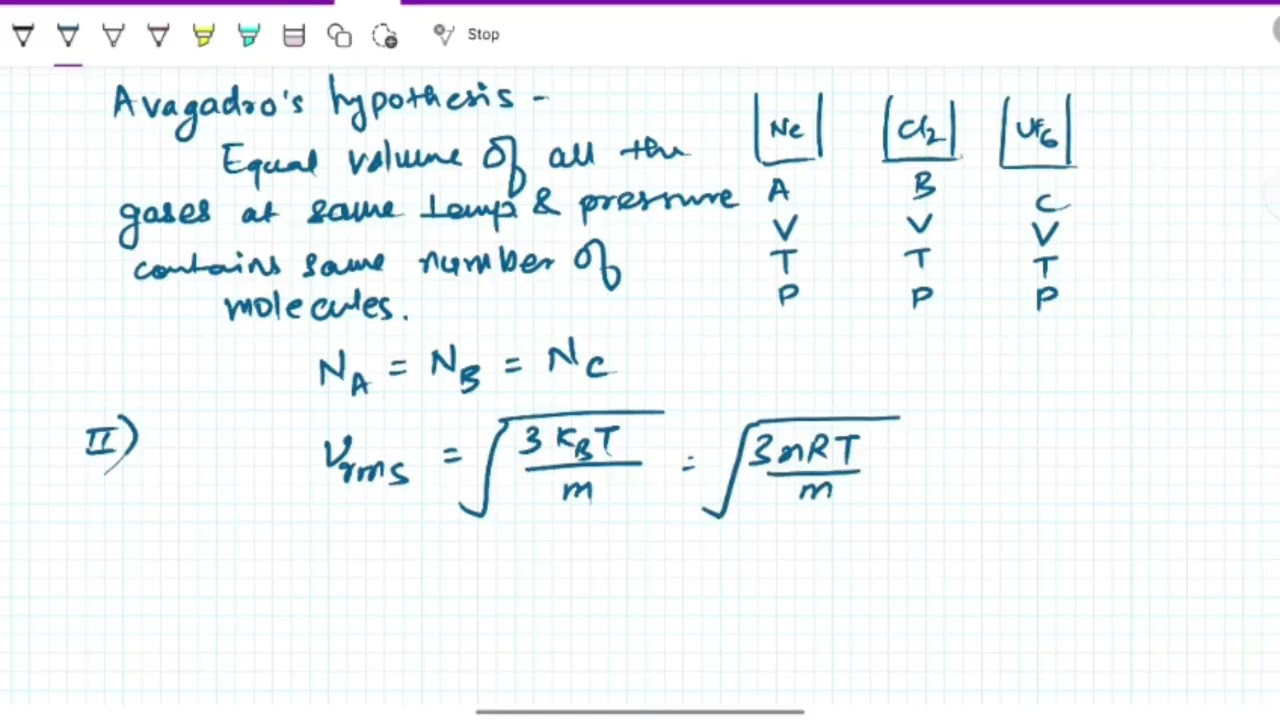 Stop
Avagadro's hypothesis -
Equal volume of all the
gases at same temp & pressure
contains same number of
molecules.
Ne Cl2 UF6
A B C
V V V
T T T
P P P
N_A = N_B = N_C
II) V_rms = √(3 K_B T / m) = √(3nRT / m)